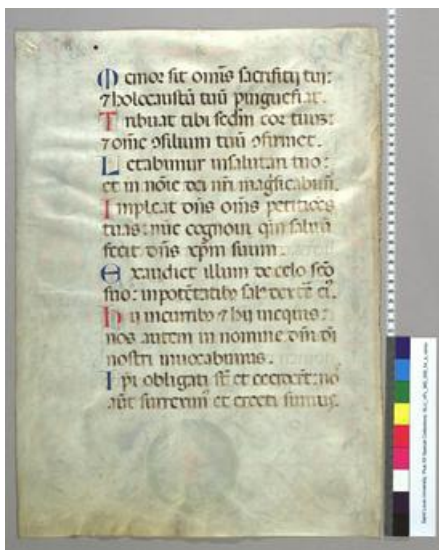 Memor sit om̄is sacrifitij tui:
⁊ holocaustū tuū pinguefiat.
Tribuat tibi sedm̄ cor tuus:
⁊ om̄e ꝯsilium tuū ꝯfirmet.
Letabimur insalutari tuo:
et in nōie dei nr̄i mag̃ficabim̄.
Impleat dn̄s om̄s petitiōes
tuas: nūc cognoui qm̄ saluū
fecit dn̄s xp̄m suum.
Exaudiet illum de celo scō
suo: in potētatibꝫ salꝰ dexterē eiꝰ.
Hij in curribꝫ ⁊ hij in equis:
nos autem in nomine dn̄i di
nostri inuocabimus.
Ipi obligati st̄ et ceciderēt: nō
aūt surreximꝰ et erecti sumus.